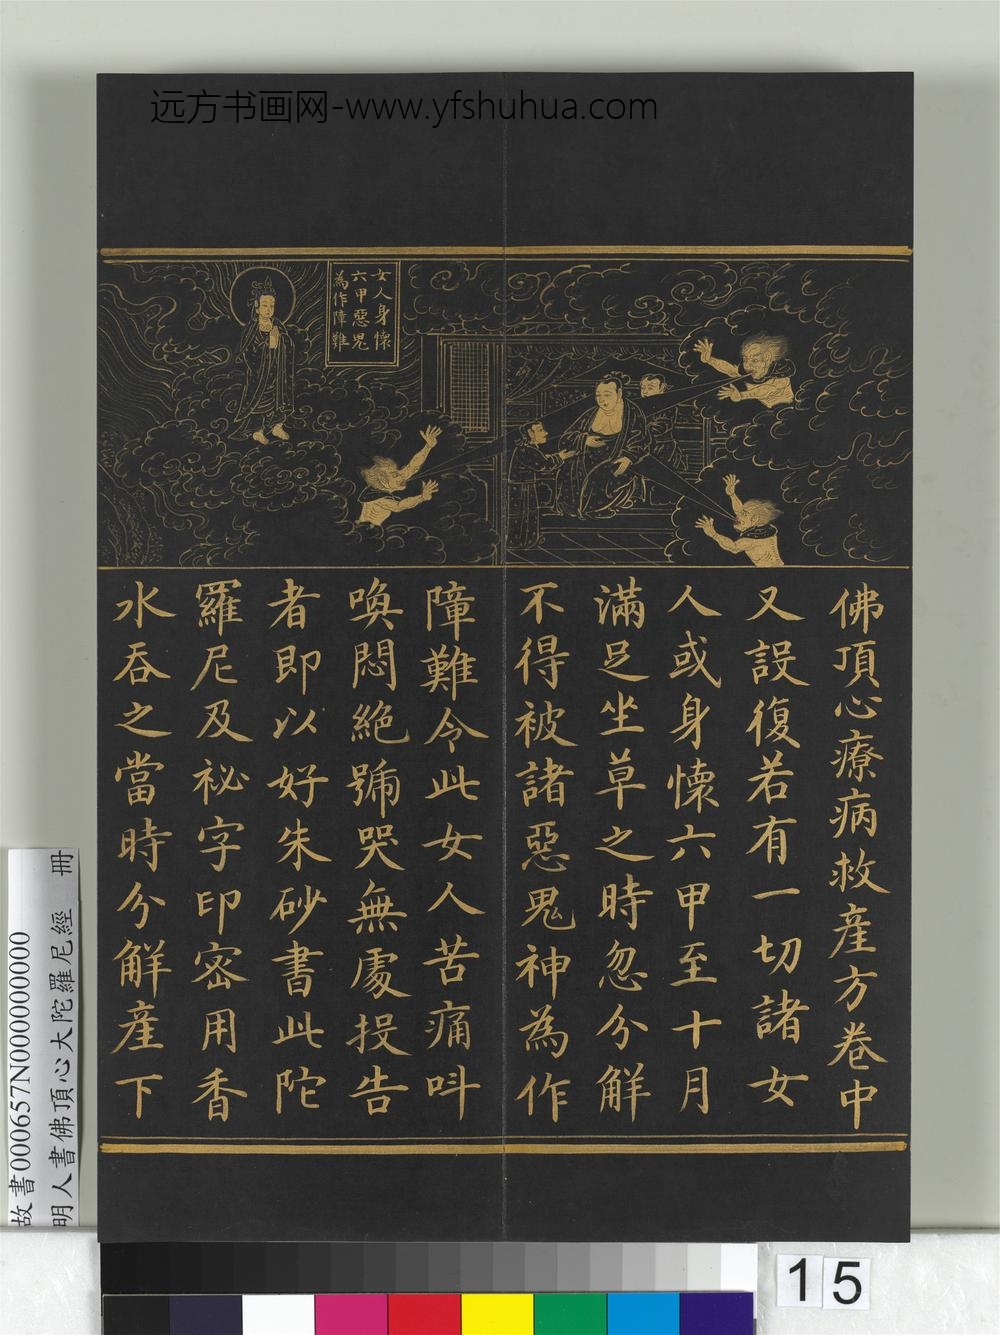 远方书画网-www.yfshuhua.com
女人身懷
六甲惡鬼
為作障難
佛頂心療病救產方卷中
又設復若有一切諸女
人或身懷六甲至十月
滿足坐草之時忽分解
不得被諸惡鬼神為作
障難令此女人苦痛叫
喚悶絕號哭無處投告
者即以好朱砂書此陀
羅尼及祕字印密用香
水吞之當時分解產下
故書000657N000000000
明人書佛頂心大陀羅尼經 冊
15